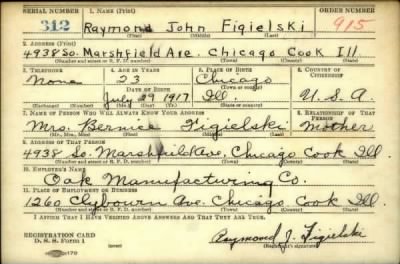 SERIAL NUMBER 1. NAME (Print) ORDER NUMBER
312 Raymond John Figielski 915
(First) (Middle) (Last)
2. ADDRESS (Print)
4938 So. Marshfield Ave. Chicago Cook Ill.
(Number and street or R. F. D. number) (Town) (County) (State)
3. TELEPHONE 4. AGE IN YEARS 5. PLACE OF BIRTH 6. COUNTRY OF CITIZENSHIP
None 23 Chicago
DATE OF BIRTH (Town or county)
July 1917 Ill U.S.A.
(Mo.) (Day) (Yr.) (State or country)
7. NAME OF PERSON WHO WILL ALWAYS KNOW YOUR ADDRESS 8. RELATIONSHIP OF THAT PERSON
Mrs. Bernice Figielski Mother
(Mr., Mrs., Miss) (First) (Middle) (Last)
9. ADDRESS OF THAT PERSON
4938 So. Marshfield Ave, Chicago Cook Ill.
(Number and street or R. F. D. number) (Town) (County) (State)
10. EMPLOYER'S NAME
Oak Manufacturing Co.
11. PLACE OF EMPLOYMENT OR BUSINESS
1260 Clybourn Ave. Chicago Cook Ill.
(Number and street or R. F. D. number) (Town) (County) (State)
I AFFIRM THAT I HAVE VERIFIED ABOVE ANSWERS AND THAT THEY ARE TRUE.
REGISTRATION CARD
D. S. S. Form 1 Raymond J. Figielski
(Registrant's signature)